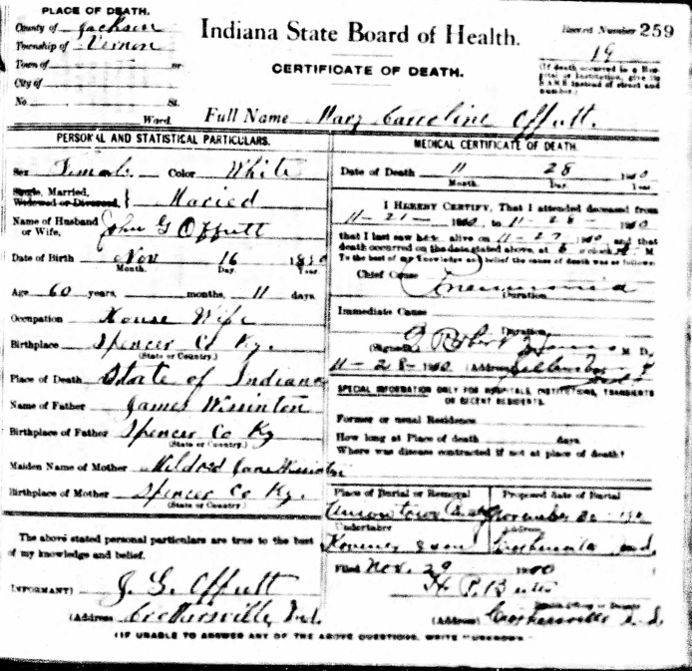 PLACE OF DEATH.
County of Jackson
Township of Vernon
Town of or
City of
No. St.
Ward.
Indiana State Board of Health.
CERTIFICATE OF DEATH.
Record Number 259
19
(If death occurred in a Hospital or Institution, give its NAME instead of street and number.)
Full Name Mary Carceline Offutt.
PERSONAL AND STATISTICAL PARTICULARS.
Sex Female Color White
Single, Married, Widowed or Divorced, } Maried
Name of Husband or Wife, John G Offutt
Date of Birth Nov 16 1850
Month. Day. Year.
Age 60 years, months, 11 days.
Occupation House Wife
Birthplace Spencer Co Ky.
(State or Country.)
Place of Death State of Indiana
Name of Father James Wissinton
Birthplace of Father Spencer Co Ky
(State or Country.)
Maiden Name of Mother Mildred Jane Wissinton
Birthplace of Mother Spencer Co Ky.
(State or Country)
The above stated personal particulars are true to the best
of my knowledge and belief.
(INFORMANT) J. G. Offutt
(Address Crothersville, Ind.
MEDICAL CERTIFICATE OF DEATH.
Date of Death 11 28 1910
Month. Day. Year
I HEREBY CERTIFY, That I attended deceased from
11-21- 1910, to 11-28 1910
that I last saw her alive on 11-27 1910, and that
death occurred on the date stated above, at o'clock M
To the best of my knowledge and belief the cause of death was as follows:
Chief Cause Pneumonia
Duration
Immediate Cause
Duration
(Signed) M D.
11-28-1910 (Address
SPECIAL INFORMATION ONLY FOR HOSPITALS, INSTITUTIONS, TRANSIENTS
OR RECENT RESIDENTS.
Former or usual Residence
How long at Place of death days
Where was disease contracted if not at place of death?
Place of Burial or Removal Proposed date of Burial
Uniontown November 30 1910
Undertaker Address
& son Crothersville Ind.
Filed Nov. 29 1910
H. P. Butler
Health Officer or Deputy
(Address) Crothersville Ind
(IF UNABLE TO ANSWER ANY OF THE ABOVE QUESTIONS, WRITE "UNKNOWN"